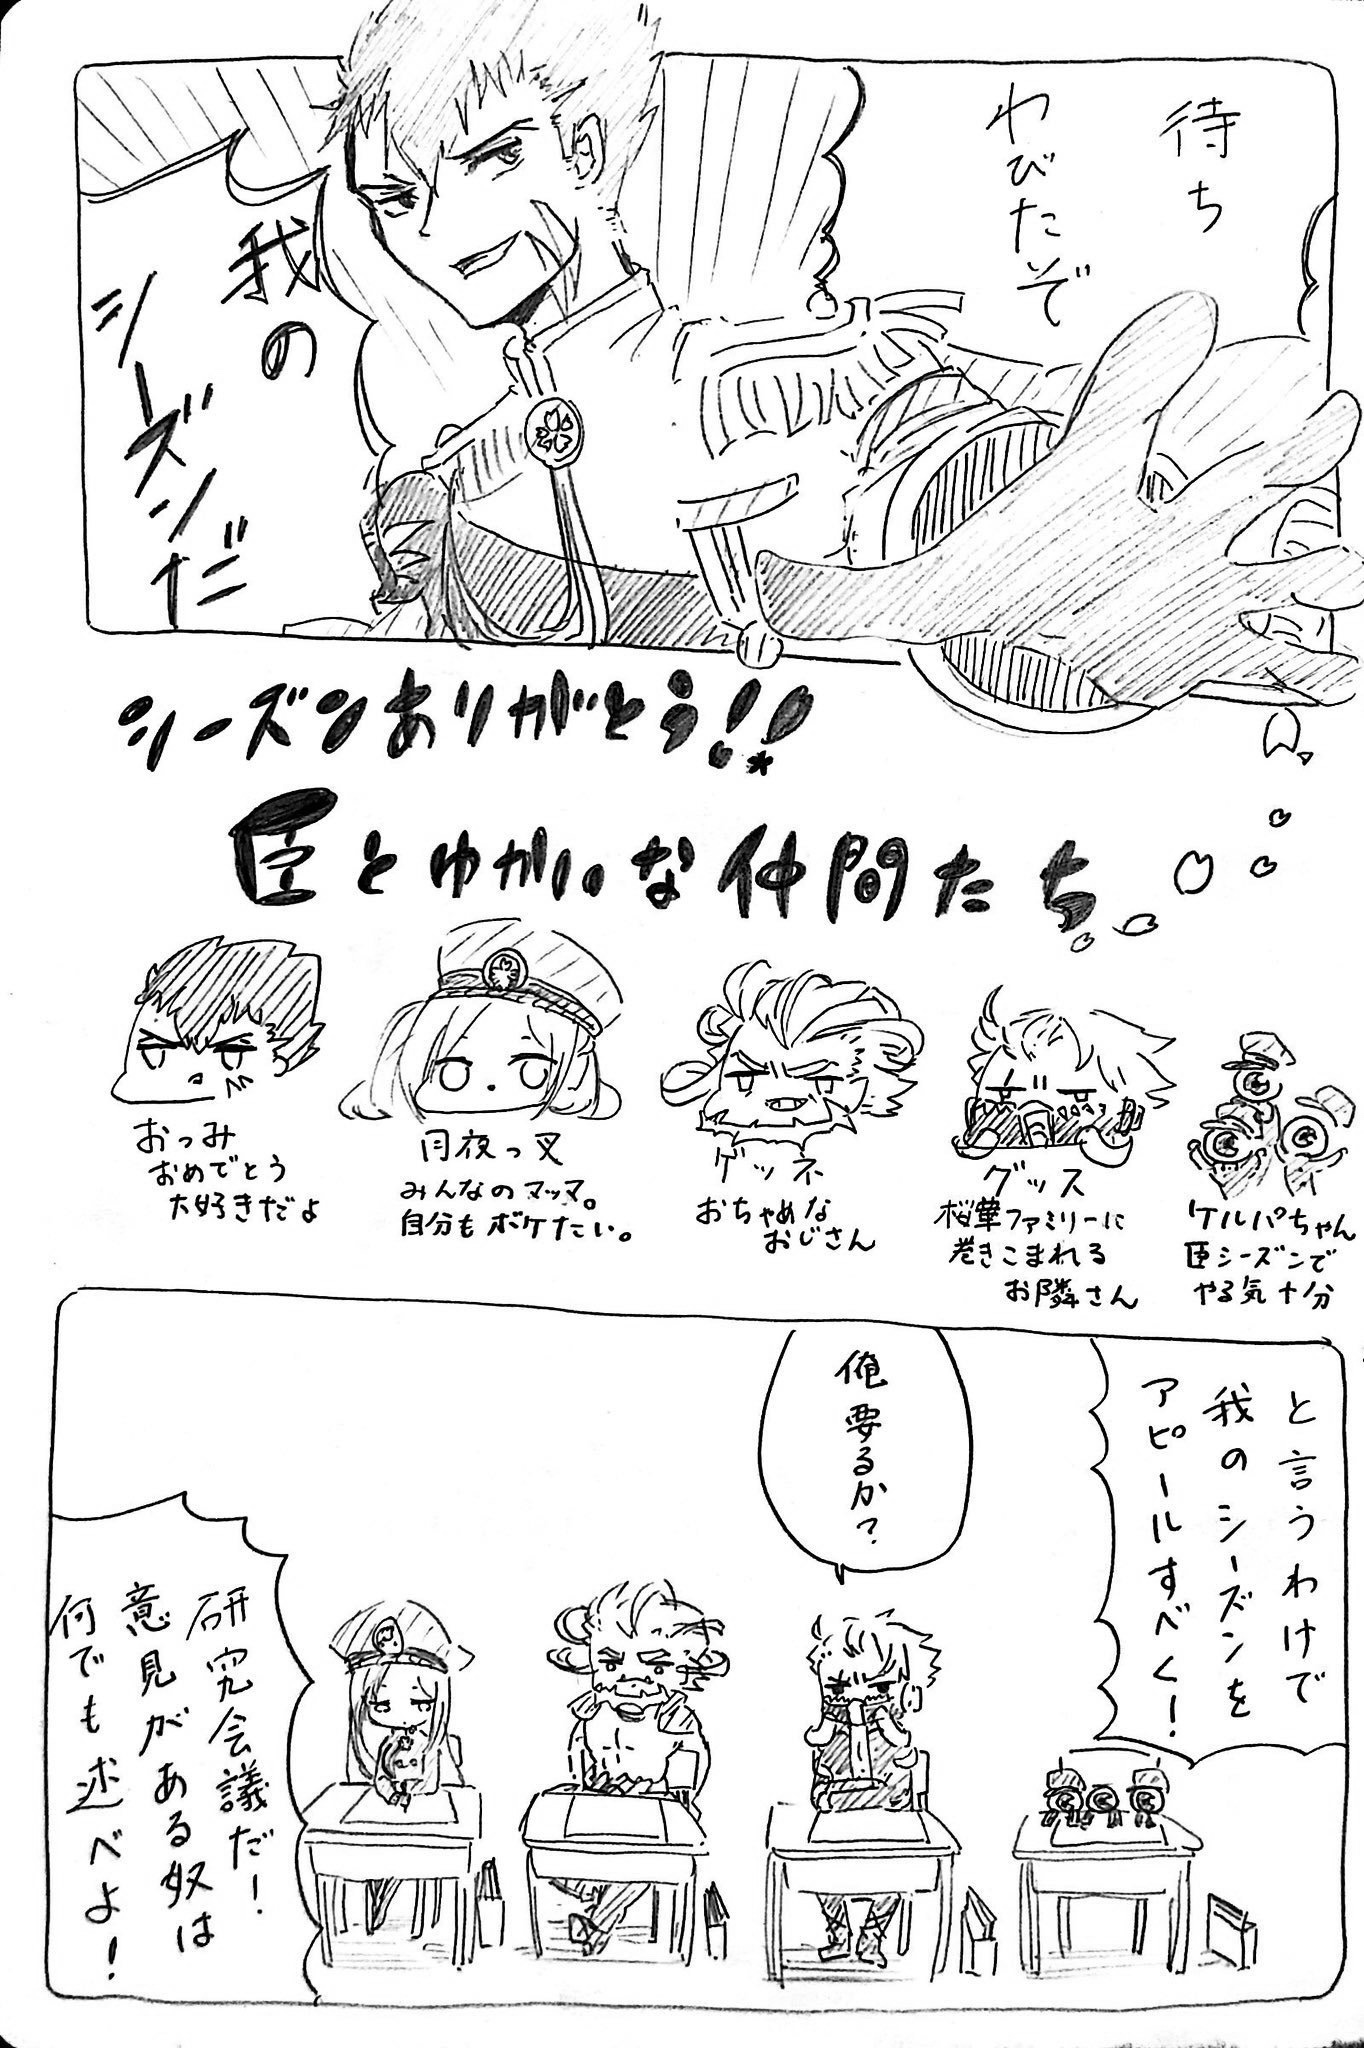 待ち
わびたぞ
我の
シーズンだ
シーズンありがとう!!
臣とゆかいな仲間たち
おつみ
おめでとう
大好きだよ
月夜っ叉
みんなのマッマ。
自分もボケたい。
ゲッネ
おちゃめな
おじさん
グッス
桜華ファミリーに
巻きこまれる
お隣さん
ケルパちゃん
臣シーズンで
やる気十分
と言うわけで
我のシーズンを
アピールすべく!
俺要るか?
研究会議だ!
意見がある奴は
何でも述べよ!